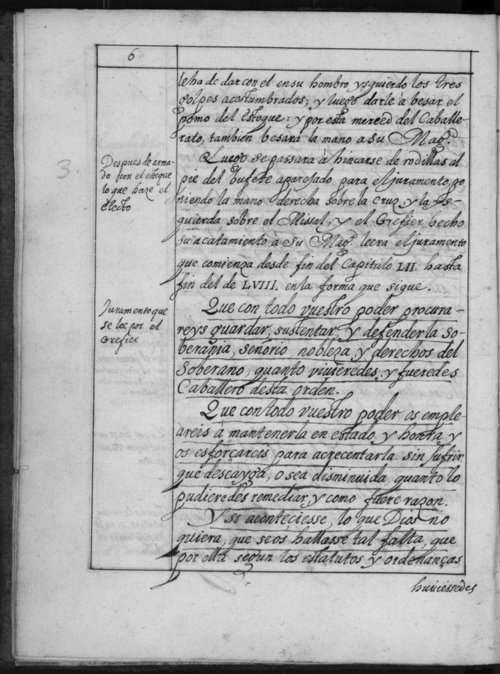 6
le ha de dar con el en su hombro ysquierdo los tres
golpes acostumbrados, y luego darle à besar el
pomo del Estoque: y por esta merced del Caballe-
rato, tambien besará la mano a Su Magᵈ.
Luego se passará à hincarse de rodillas al
pie del bufete aparejado para el juramento, po-
niendo la mano derecha sobre la Cruz, y la yz-
quierda sobre el Missal, y el Grefier hecho
su acatamiento à Su Magᵈ. leera el juramento
que comienza desde fin del Capitulo LII. hasta
fin del de LVIII. en la forma que sigue.
Que con todo vuestro poder procura-
reys guardar, sustentar, y defender la So-
berania, señorio nobleza, y derechos del
Soberano, quanto viuieredes, y fueredes
Caballero desta orden.
Que con todo vuestro poder os emple-
areis à mantenerla en estado, y honrra, y
os esforçareis para acrecentarla sin sufrir
que descayga, o sea disminuida, quanto lo
pudieredes remediar, y como fuere razon.
Y si aconteciesse, lo que Dios no
quiera, que se os hallasse tal falta, que
por ella segun los estatutos y ordenanças
huviessedes
3
Despues de arma-
do con el estoque
lo que haze el
Electo
Juramento que
se lee por el
Grefier